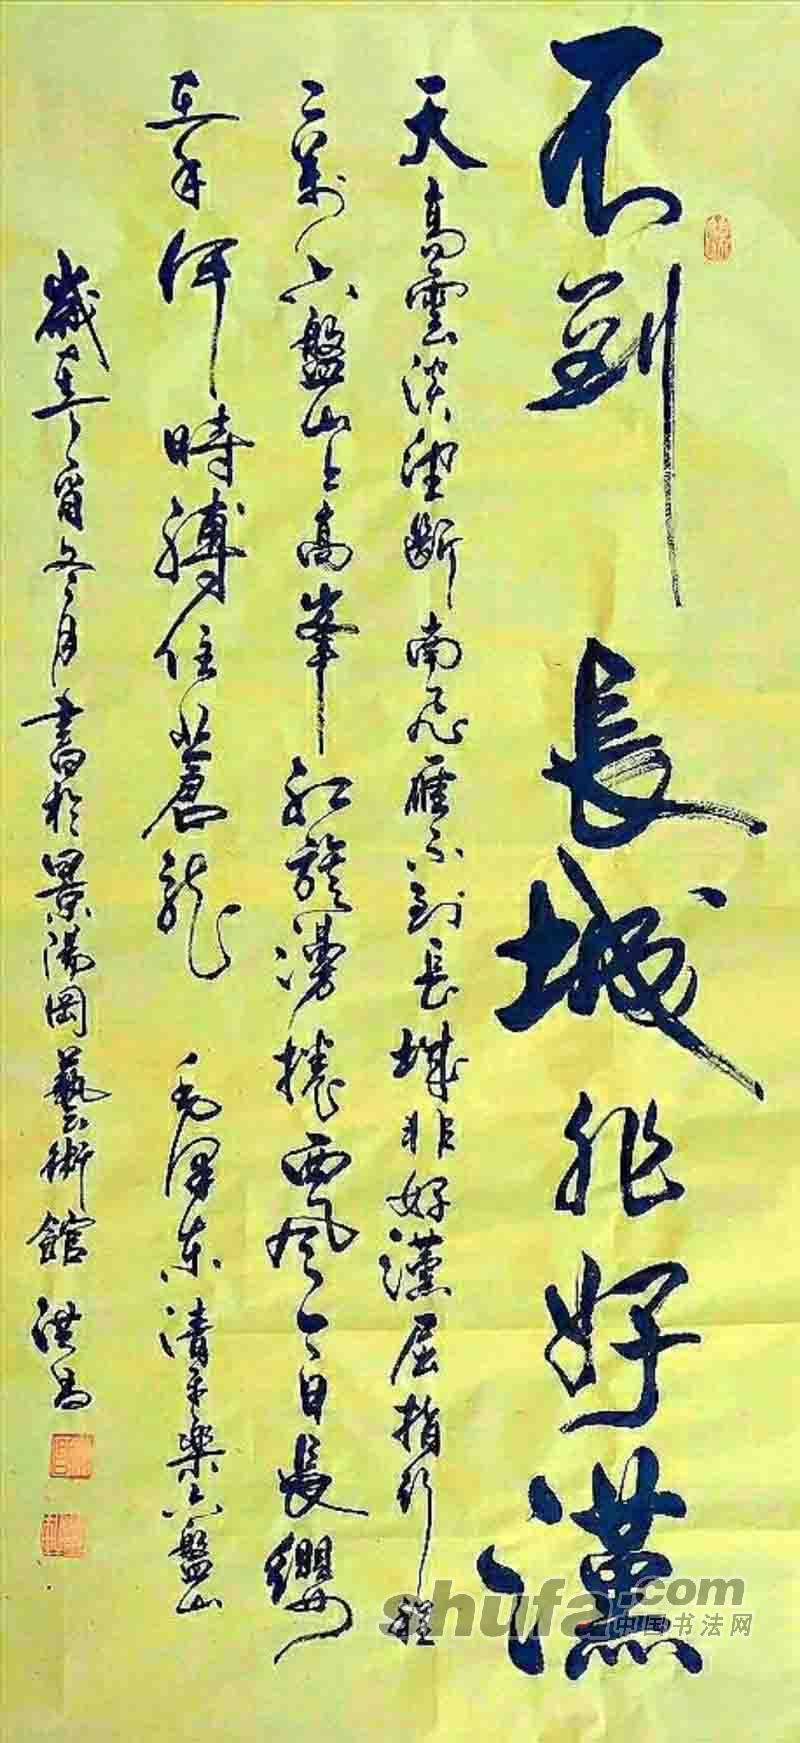 不到長城非好漢
天高雲淡望斷南飛雁不到長城非好漢屈指行程
二萬六盤山上高峯紅旗漫捲西風今日長纓
在手何時縛住蒼龍 毛澤東清平樂六盤山
歲在冬月書於景陽岡藝術館 洪
shufa.com
中国书法网